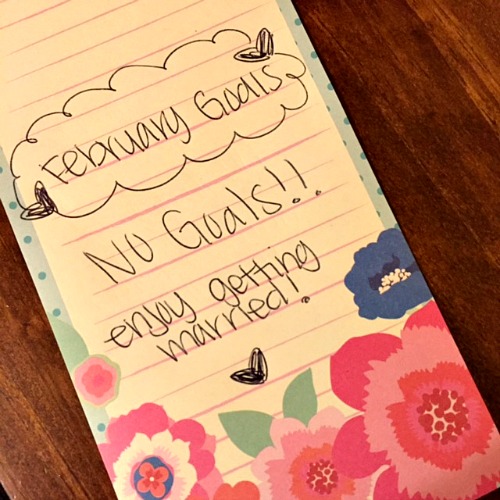 February Goals
No Goals!!.
enjoy getting
married!